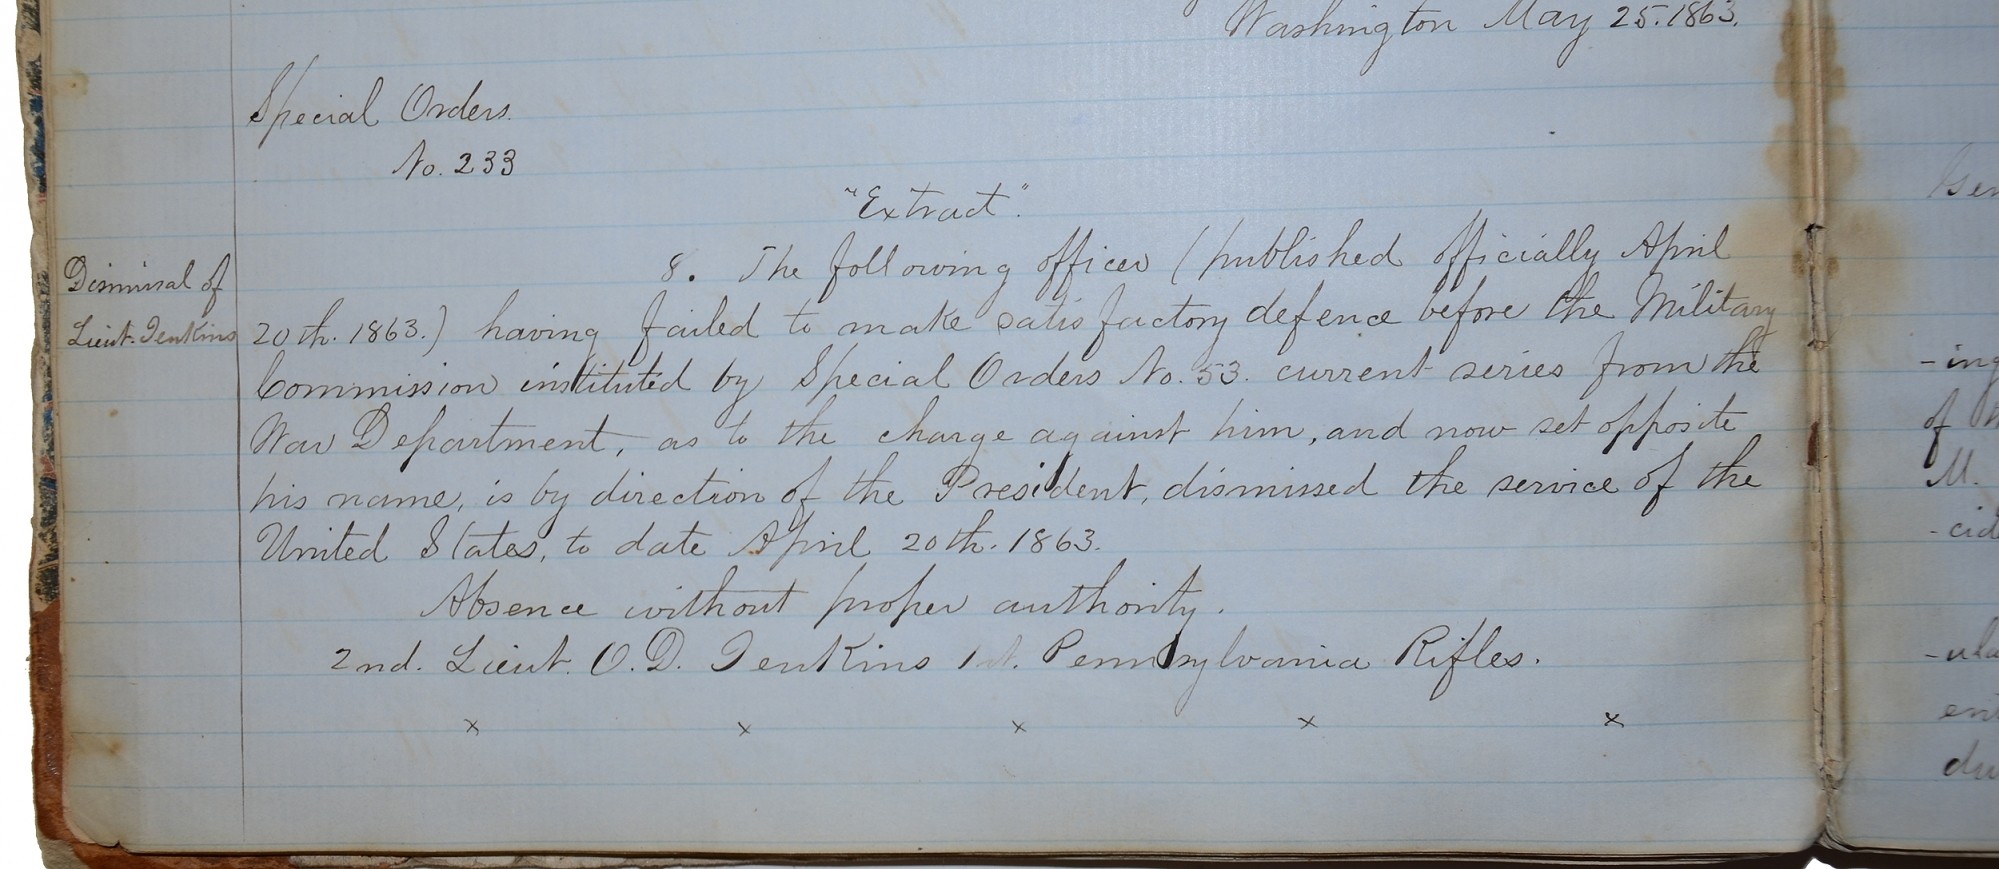 Washington May 25. 1863.
Special Orders.
No. 233
"Extract".
8. The following officer (published officially April
Dismissal of
Lieut. Jenkins
20th. 1863.) having failed to make satisfactory defence before the Military
Commission instituted by Special Orders No. 53. current series from the
War Department, as to the charge against him, and now set opposite
his name, is by direction of the President, dismissed the service of the
United States, to date April 20th. 1863.
Absence without proper authority.
2nd. Lieut. O. D. Jenkins 1st. Pennsylvania Rifles.
x x x x x
-ing
of
M.
-cid
-ula
ent